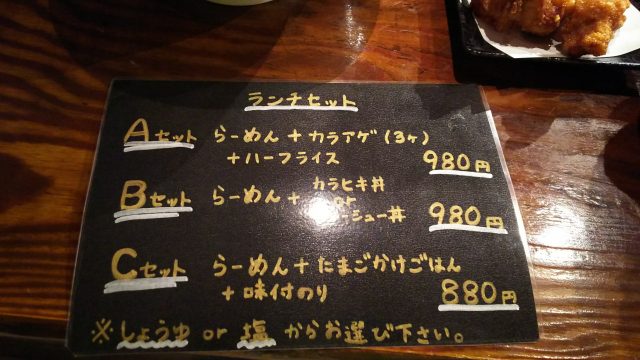 ランチセット
Aセット らーめん+カラアゲ(3ヶ)
+ハーフライス 980円
カラヒキ丼
Bセット らーめん+ or 980円
シュー丼
Cセット らーめん+たまごかけごはん
+味付のり 880円
※しょうゆ or 塩 からお選び下さい。